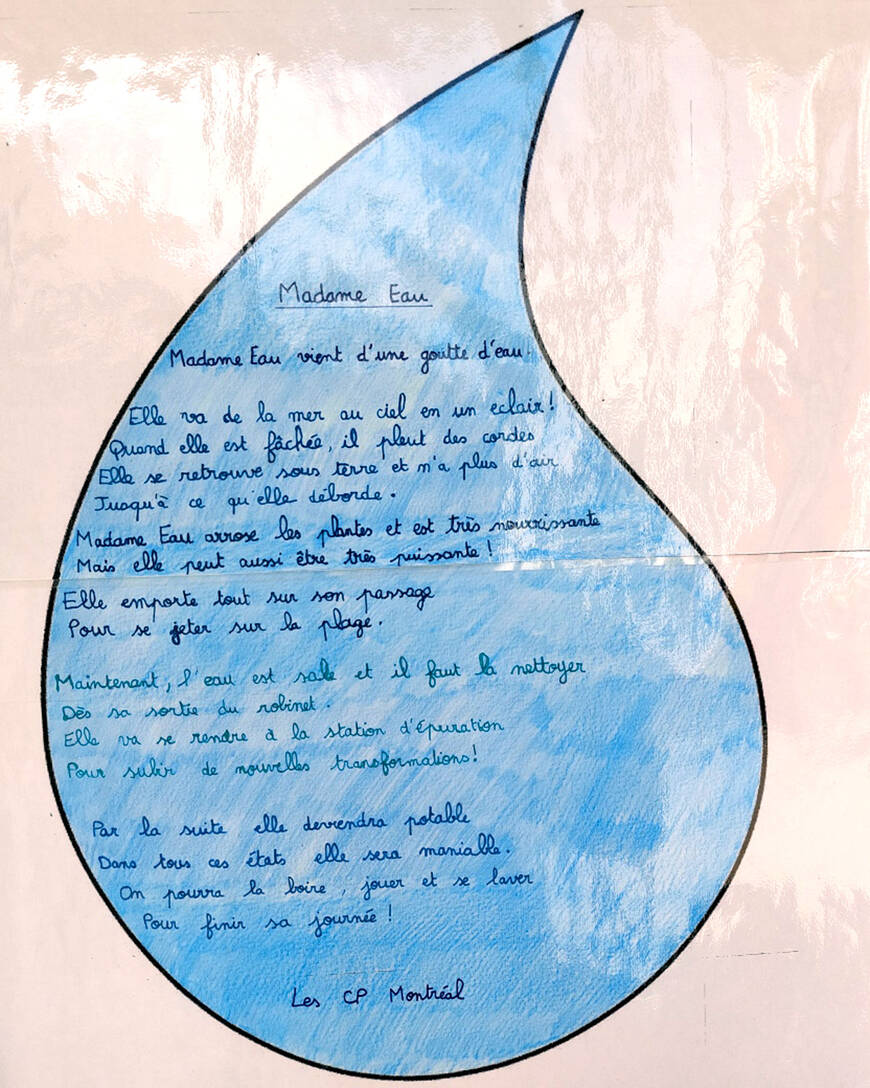 Madame Eau
Madame Eau vient d'une goutte d'eau.
Elle va de la mer au ciel en un eclair !
Quand elle est fâchée, il pleut des cordes
Elle se retrouve sous terre et n'a plus d'air
Jusqu'à ce qu'elle déborde.
Madame Eau arrose les plantes et est très nourrissante
Mais elle peut aussi être très puissante !
Elle emporte tout sur son passage
Pour se jeter sur la plage.
Maintenant, l'eau est sale et il faut la nettoyer
Dès sa sortie du robinet.
Elle va se rendre à la station d'épuration
Pour subir de nouvelles transformations!
Par la suite elle deviendra potable
Dans tous ces états elle sera maniable.
On pourra la boire, jouer et se laver
Pour finir sa journée !
Les CP Montréal